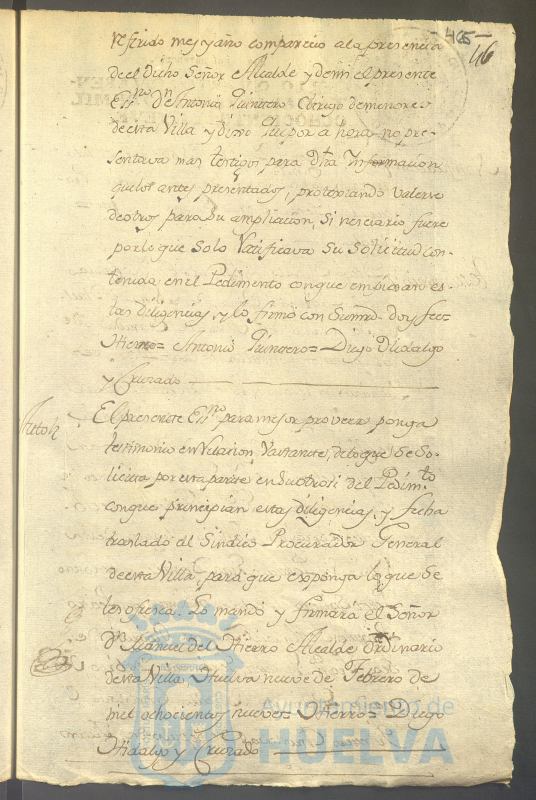 - 465 -
46
referido mes y año comparecio a la presencia
de el Dicho Señor Alcalde y demi el presente
Essno Dn Antonio Quintero Clerigo de menores
de esta Villa y dixo Que por ahora no pre-
sentava mas testigos para dha Informacion
que los antes presentados, protextando valerse
de otros para su ampliacion, si necesario fuere
por lo que solo Ratificava su solicitud con-
tenida en el Pedimento con que empiesan es-
tas diligencias, y lo firmó con Sumrd. doy fee=
Hierro= Antonio Quintero= Diego Hidalgo
y Cruzado
Auto
El presente Essno para mejor proveer ponga
testimonio en relacion, vastante, de lo que se so-
licita por esta parte en su otrosi del Pedimto
con que principian estas diligencias, y fecha
traslado al Sindico Procurador General
de esta Villa, para que exponga lo que se
le ofresca. Lo mandó y firmará el Señor
Dn Manuel del Hierro Alcalde Ordinario
de esta Villa Huelva nueve de Febrero de
mil ochocientos nueve= Hierro= Diego
Hidalgo y Cruzado
Ayuntamiento de
HUELVA